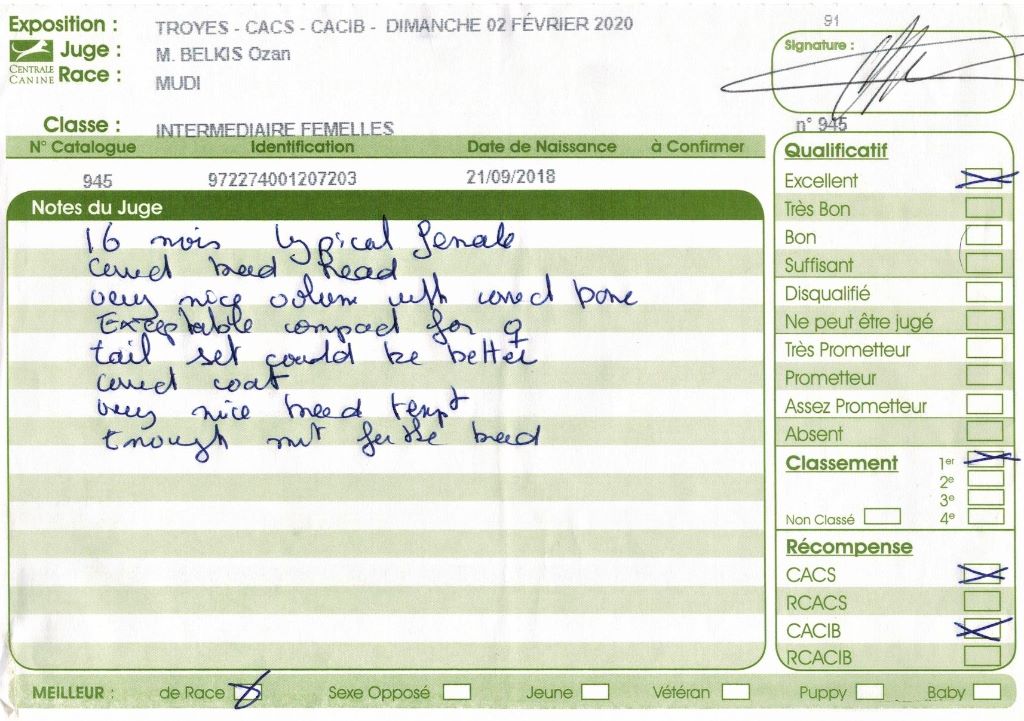 Exposition : TROYES - CACS - CACIB - DIMANCHE 02 FÉVRIER 2020
91
Juge : M. BELKIS Ozan
Signature :
CENTRALE CANINE
Race : MUDI
Classe : INTERMEDIAIRE FEMELLES
n° 945
N° Catalogue Identification Date de Naissance à Confirmer
945 972274001207203 21/09/2018
Notes du Juge
16 mois typical female
correct breed head
very nice volum with correct bone
Exceptable compact for ♀
tail set could be better
correct coat
very nice breed tempt
Enough for the breed
Qualificatif
Excellent
Très Bon
Bon
Suffisant
Disqualifié
Ne peut être jugé
Très Prometteur
Prometteur
Assez Prometteur
Absent
Classement 1er
2e
3e
Non Classé 4e
Récompense
CACS
RCACS
CACIB
RCACIB
MEILLEUR : de Race Sexe Opposé Jeune Vétéran Puppy Baby